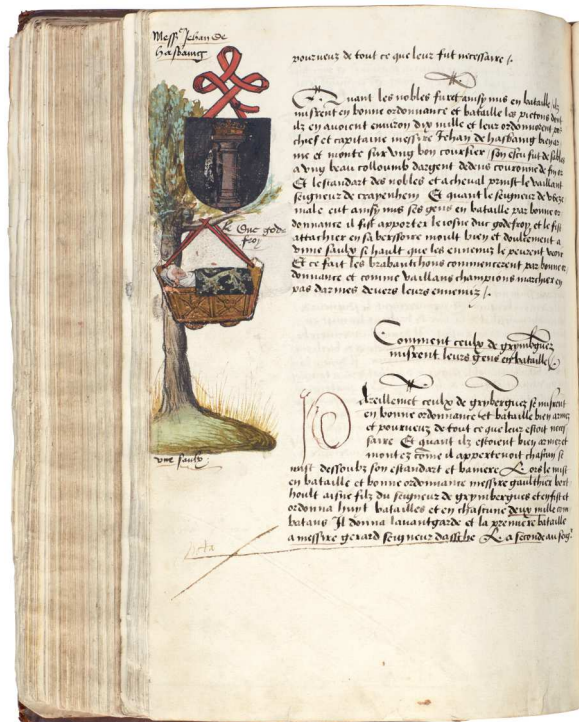 Messr Jehan de
hasbaing
pourveuz de tout ce que leur fut necessaire /.
Quant les nobles furet ainsy mis en bataille ilz
misrent en bonne ordonnance et bataille les pietons dont
ilz en avoient environ dix mille et leur ordonnoient po
chef et capitaine messire Jehan de hasbaing bien ar
me et monte sur ung bon coursier / son escu fut de sable
a ung beau colloumb dargent dedens couronne de
Et lestandart des nobles et a cheval prinst le vaillant
seigneur de crayenhem Et quant le seigneur de
male eut ainsy mis ses gens en bataille par bonne or
donnance il fist apporter le josne duc godefroy et le fist
attachier en sa berssoire moult bien et doulcement a
vnne saulx si hault que les ennemiz le peurent veoir
Et ce fait les brabanchons commencerent par bonne or
donnance et comme vaillans champions marchier en
pas darmes devers leurs ennemiz /.
le Duc gode
froy
vne saulx
Comment ceulx de grymberguez
misrent leurs gens en bataille
Pareillemet ceulx de grymberguez se misrent
en bonne ordonnance et bataille bien armez
et pourveuz de tout ce que leur estoit neces
saire Et quant ilz estoient bien armez et
montez come il appertenoit chascun se
mist dessoubz son estandart et baniere Lors le mist
en bataille et bonne ordonnance messire gaulthier bert
hoult aisne filz du seigneur de grymbergues et en fist et
ordonna huyt batailles et en chascune deux mille com
batans Il donna lavantgarde et la premiere bataille
a messire gerard seigneur dassche La seconde au seigr